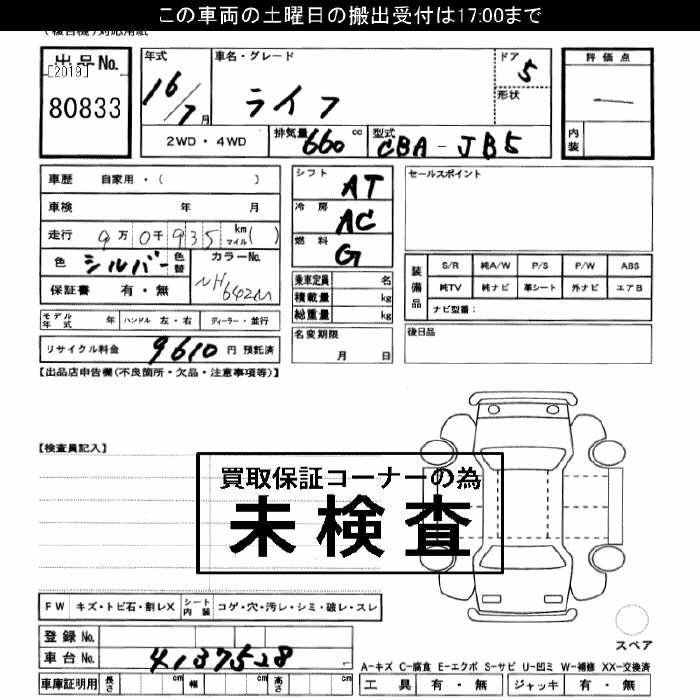 この車両の土曜日の搬出受付は17:00まで
(複合機)対応用紙
出品No. [2019] 80833
年式 16/7月
車名・グレード ライフ
ドア 5
形状
評価点 —
内装
2WD・4WD
排気量 660 cc
型式 CBA-JB5
車歴 自家用・( )
車検 年 月
走行 9万0千935 km マイル( )
色 シルバー 色替
カラーNo. NH642M
保証書 有・無
シフト AT
冷房 AC
燃料 G
乗車定員 名
積載量 kg
総重量 kg
セールスポイント
装備品
S/R 純A/W P/S P/W ABS
純TV 純ナビ 革シート 外ナビ エアB
ナビ型番:
モデル年式 年 ハンドル 左・右 ディーラー・並行
リサイクル料金 9610 円 預託済
名変期限 月 日
後日品
【出品店申告欄(不良箇所・欠品・注意事項等)】
【検査員記入】
買取保証コーナーの為
未検査
FW キズ・トビ石・割レX シート内装 コゲ・穴・汚レ・シミ・破レ・スレ
登録No.
車台No. 4137528
車庫証明用 長さ cm 幅 cm 高さ cm
スペア
A-キズ C-腐食 E-エクボ S-サビ U-凹ミ W-補修 XX-交換済
工具 有・無 ジャッキ 有・無